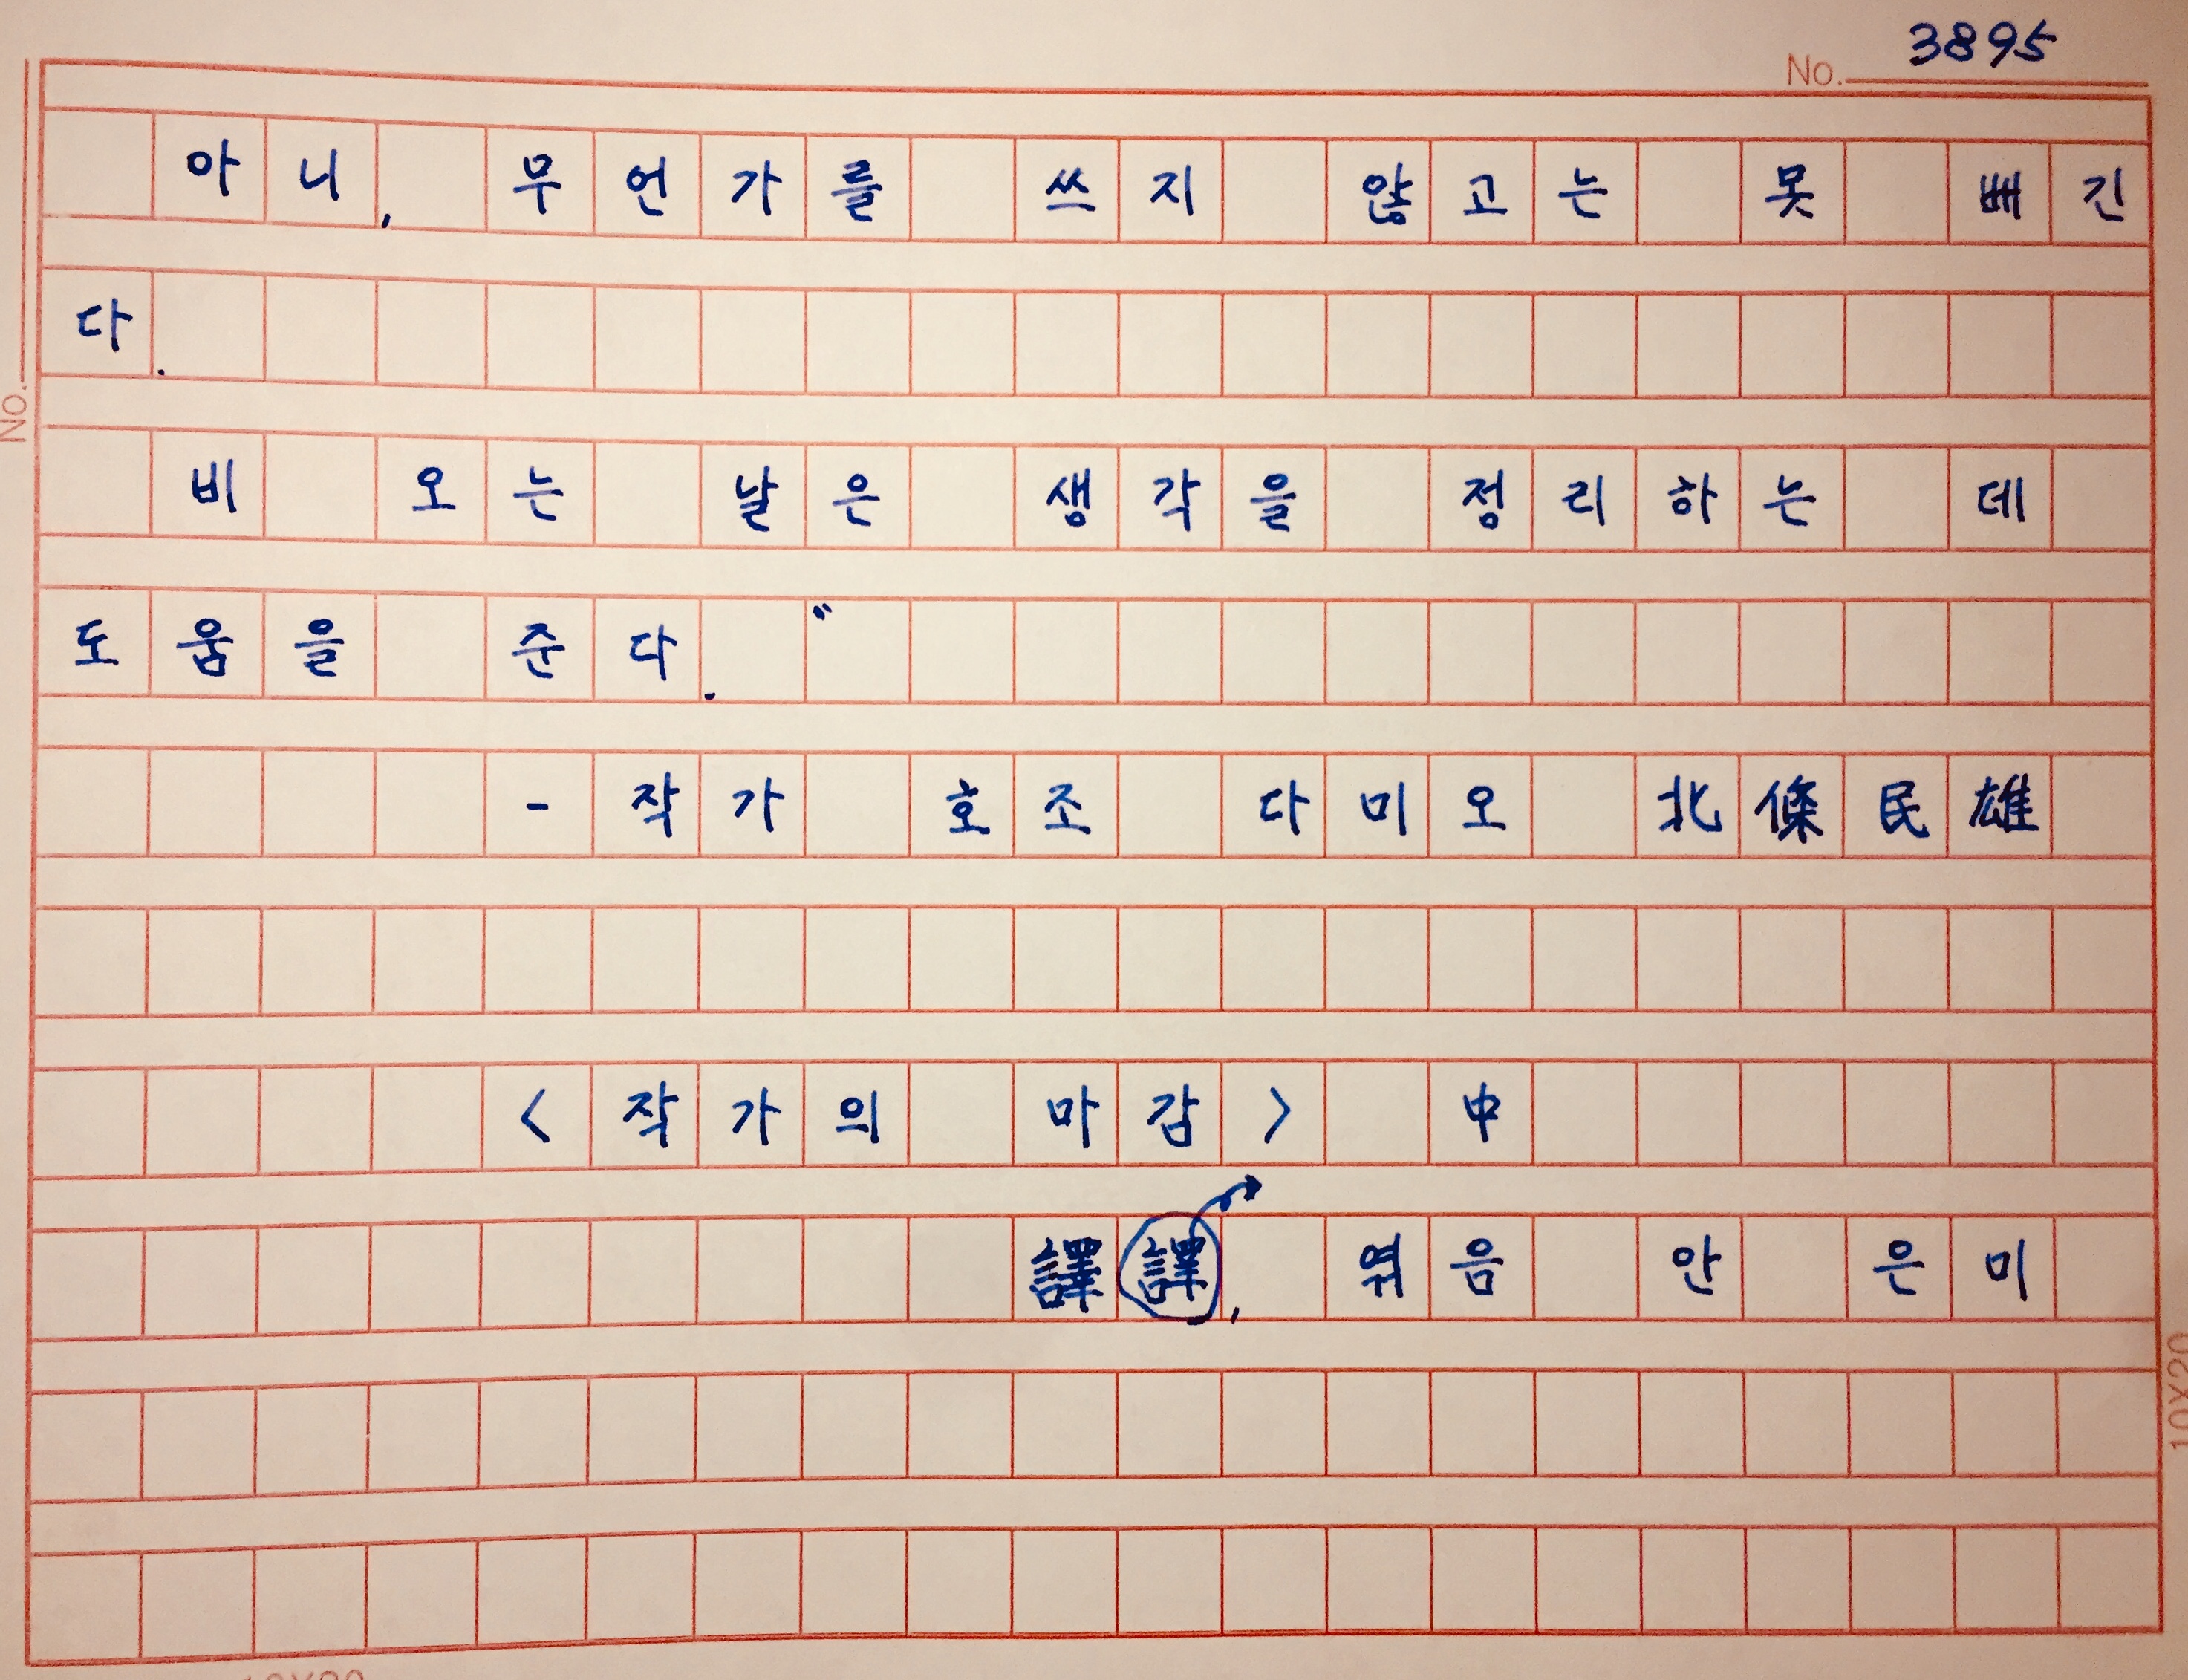 3895
No.
아니, 무언가를 쓰지 않고는 못 빼긴
다.
비 오는 날은 생각을 정리하는 데
도움을 준다."
- 작가 호조 다미오 北條民雄
<작가의 마감> 中
譯譯, 엮음 안은미
No.
10X20
10X20